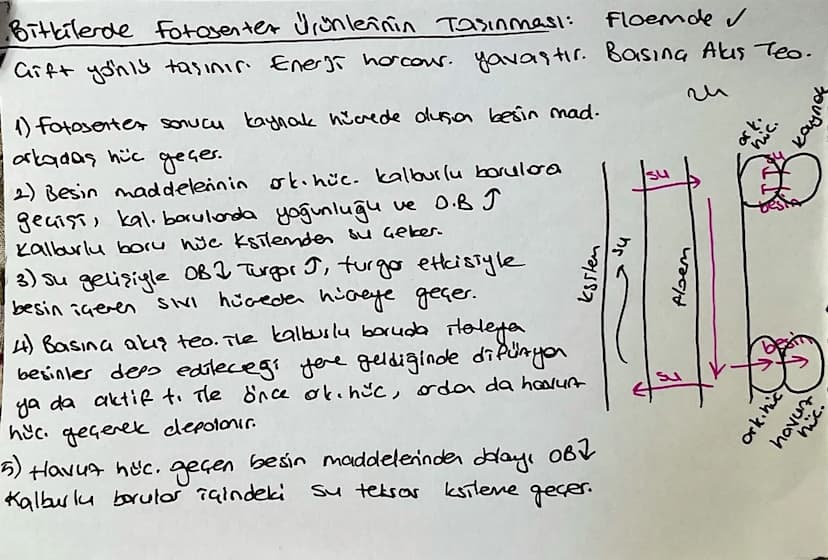 Bitkilerde Fotosentez Ürünlerinin Taşınması: Floemde ✓
Çift yönlü taşınır. Enerji harcanır. yavaştır. Basınç Akış Teo.
1) Fotosentez sonucu kaynak hücrede oluşan besin mad.
arkadaş hüc geçer.
2) Besin maddelerinin ark. hüc. kalburlu borulara
geçişi, kal. borularda yoğunluğu ve O.B ↑
Kalburlu boru hüc ksilemden su çeker.
3) Su gelişiyle OB↓ Turgor ↑, turgor etkisiyle
besin içeren sıvı hücreden hücreye geçer.
4) Basınç akış teo. ile kalburlu boruda ilerleyen
besinler depo edileceği yere geldiğinde difüzyon
ya da aktif t. ile önce ark. hüc, ordan da havuz
hüc. geçerek depolanır.
5) Havuz hüc. geçen besin maddelerinden dolayı OB↓
Kalburlu borular içindeki su tekrar ksileme geçer.
ark. hüc.
kaynak
su
besin
su
ksilem
su
floem
su
besin
ark. hüc
havuz hüc.